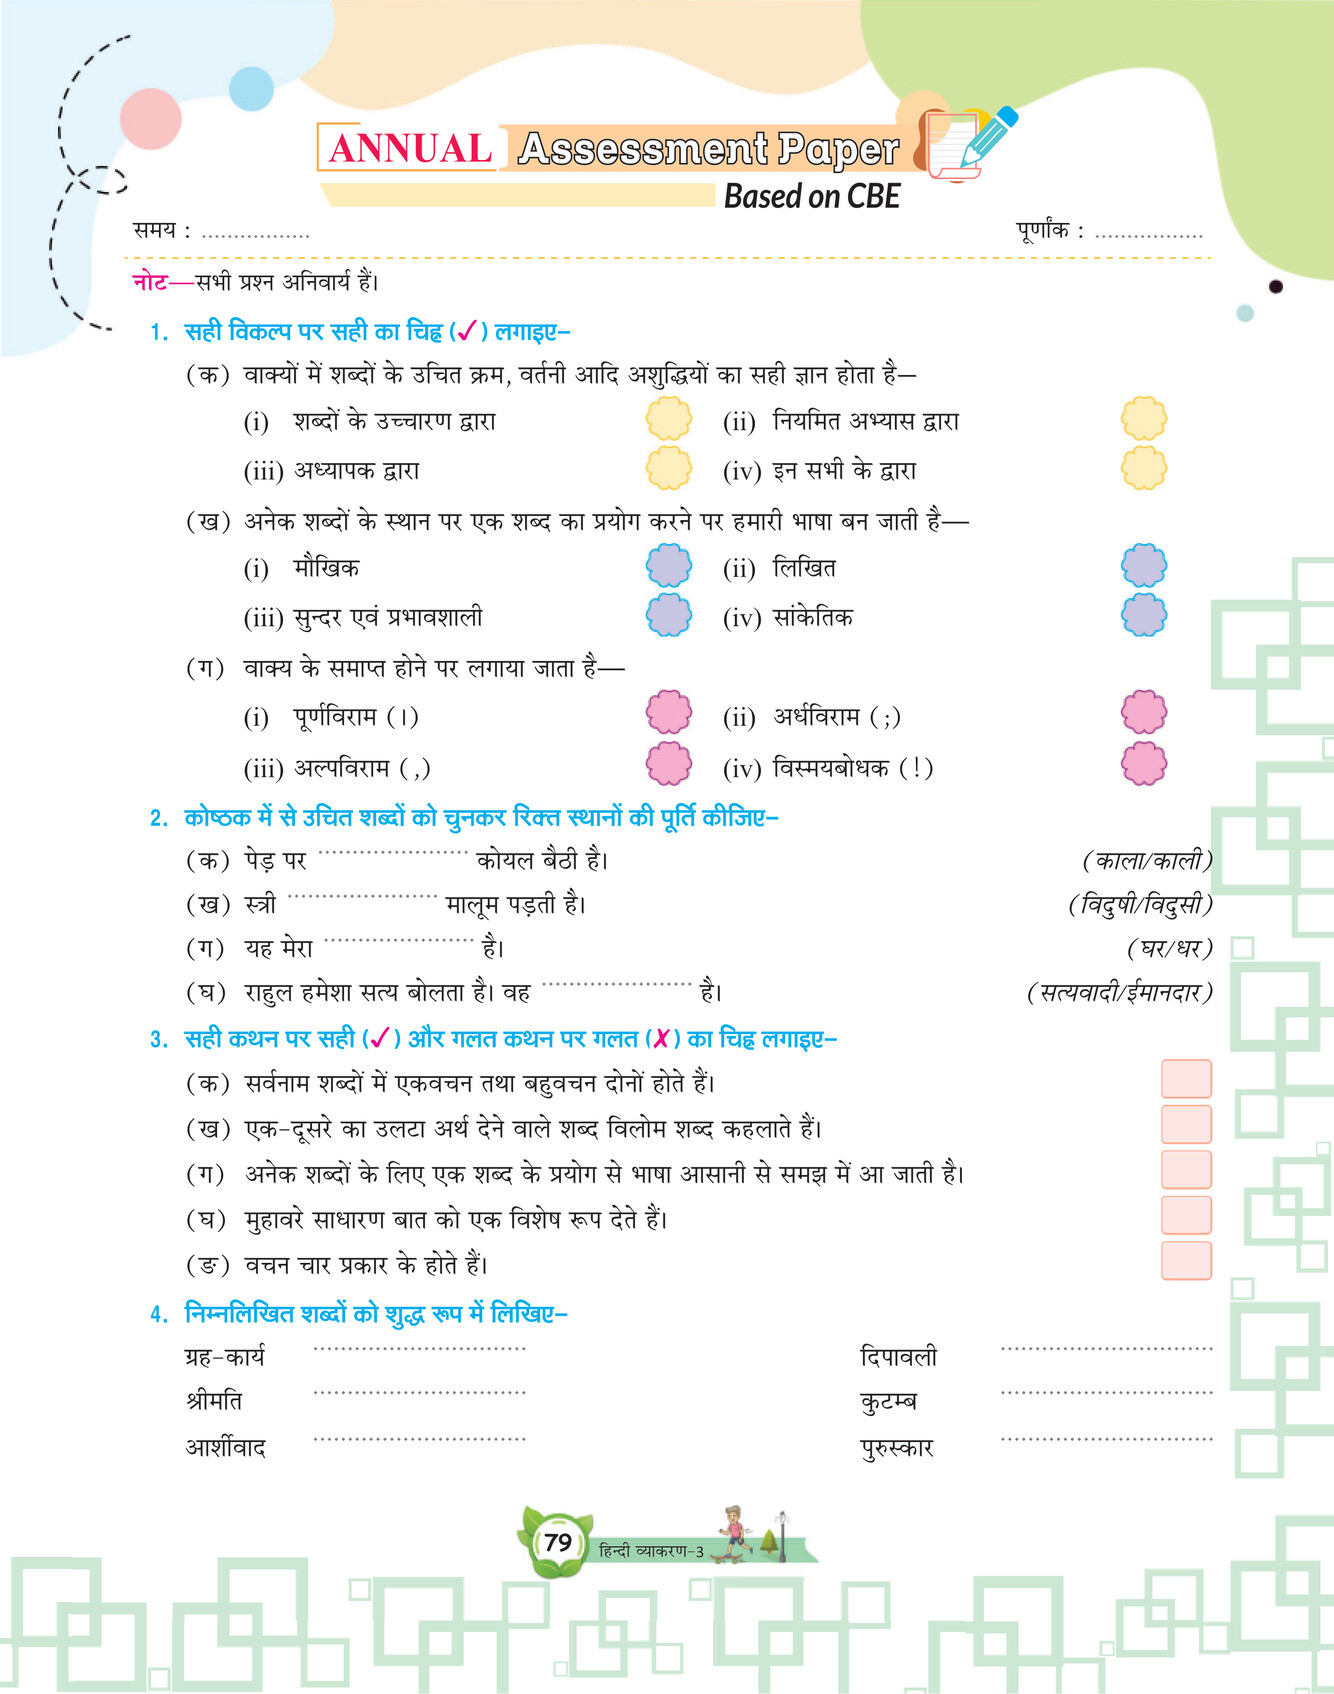 ANNUAL Assessment Paper
Based on CBE
समय : ................. पूर्णांक : .................
नोट—सभी प्रश्न अनिवार्य हैं।
1. सही विकल्प पर सही का चिह्न (✓) लगाइए–
(क) वाक्यों में शब्दों के उचित क्रम, वर्तनी आदि अशुद्धियों का सही ज्ञान होता है—
(i) शब्दों के उच्चारण द्वारा (ii) नियमित अभ्यास द्वारा
(iii) अध्यापक द्वारा (iv) इन सभी के द्वारा
(ख) अनेक शब्दों के स्थान पर एक शब्द का प्रयोग करने पर हमारी भाषा बन जाती है—
(i) मौखिक (ii) लिखित
(iii) सुन्दर एवं प्रभावशाली (iv) सांकेतिक
(ग) वाक्य के समाप्त होने पर लगाया जाता है—
(i) पूर्णविराम (।) (ii) अर्धविराम (;)
(iii) अल्पविराम (,) (iv) विस्मयबोधक (!)
2. कोष्ठक में से उचित शब्दों को चुनकर रिक्त स्थानों की पूर्ति कीजिए–
(क) पेड़ पर ...................... कोयल बैठी है। (काला/काली)
(ख) स्त्री ...................... मालूम पड़ती है। (विदुषी/विदुसी)
(ग) यह मेरा ...................... है। (घर/धर)
(घ) राहुल हमेशा सत्य बोलता है। वह ...................... है। (सत्यवादी/ईमानदार)
3. सही कथन पर सही (✓) और गलत कथन पर गलत (✗) का चिह्न लगाइए–
(क) सर्वनाम शब्दों में एकवचन तथा बहुवचन दोनों होते हैं।
(ख) एक-दूसरे का उलटा अर्थ देने वाले शब्द विलोम शब्द कहलाते हैं।
(ग) अनेक शब्दों के लिए एक शब्द के प्रयोग से भाषा आसानी से समझ में आ जाती है।
(घ) मुहावरे साधारण बात को एक विशेष रूप देते हैं।
(ङ) वचन चार प्रकार के होते हैं।
4. निम्नलिखित शब्दों को शुद्ध रूप में लिखिए–
ग्रह-कार्य ............................... दिपावली ...............................
श्रीमति ............................... कुटम्ब ...............................
आर्शीवाद ............................... पुरुस्कार ...............................
79 हिन्दी व्याकरण-3